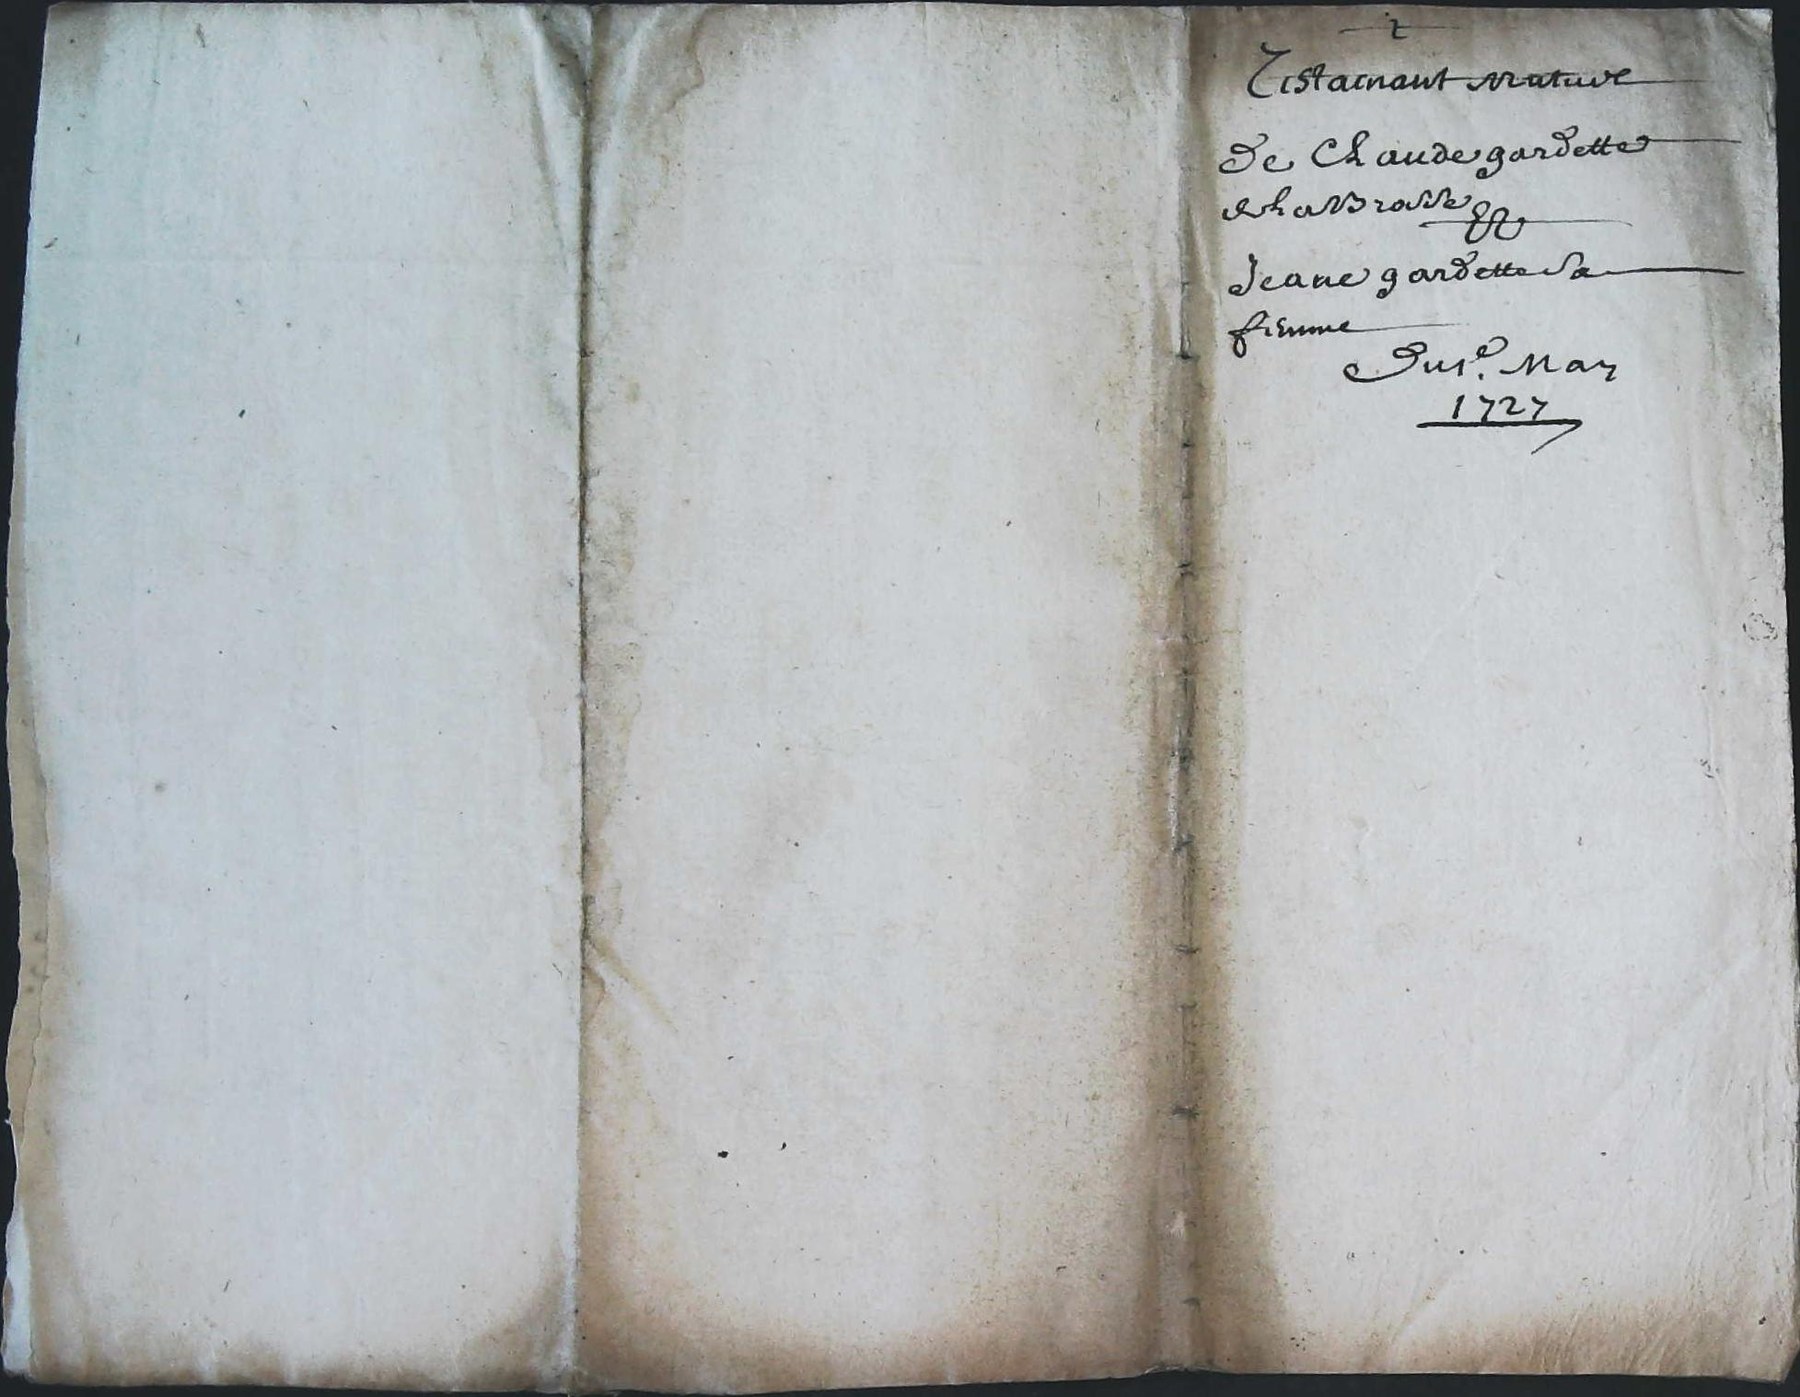 2
Testamant Mutuel
De Claude gardette
de la Brosse Et
Jeane gardette sa
femme
Du 1e. May
1727